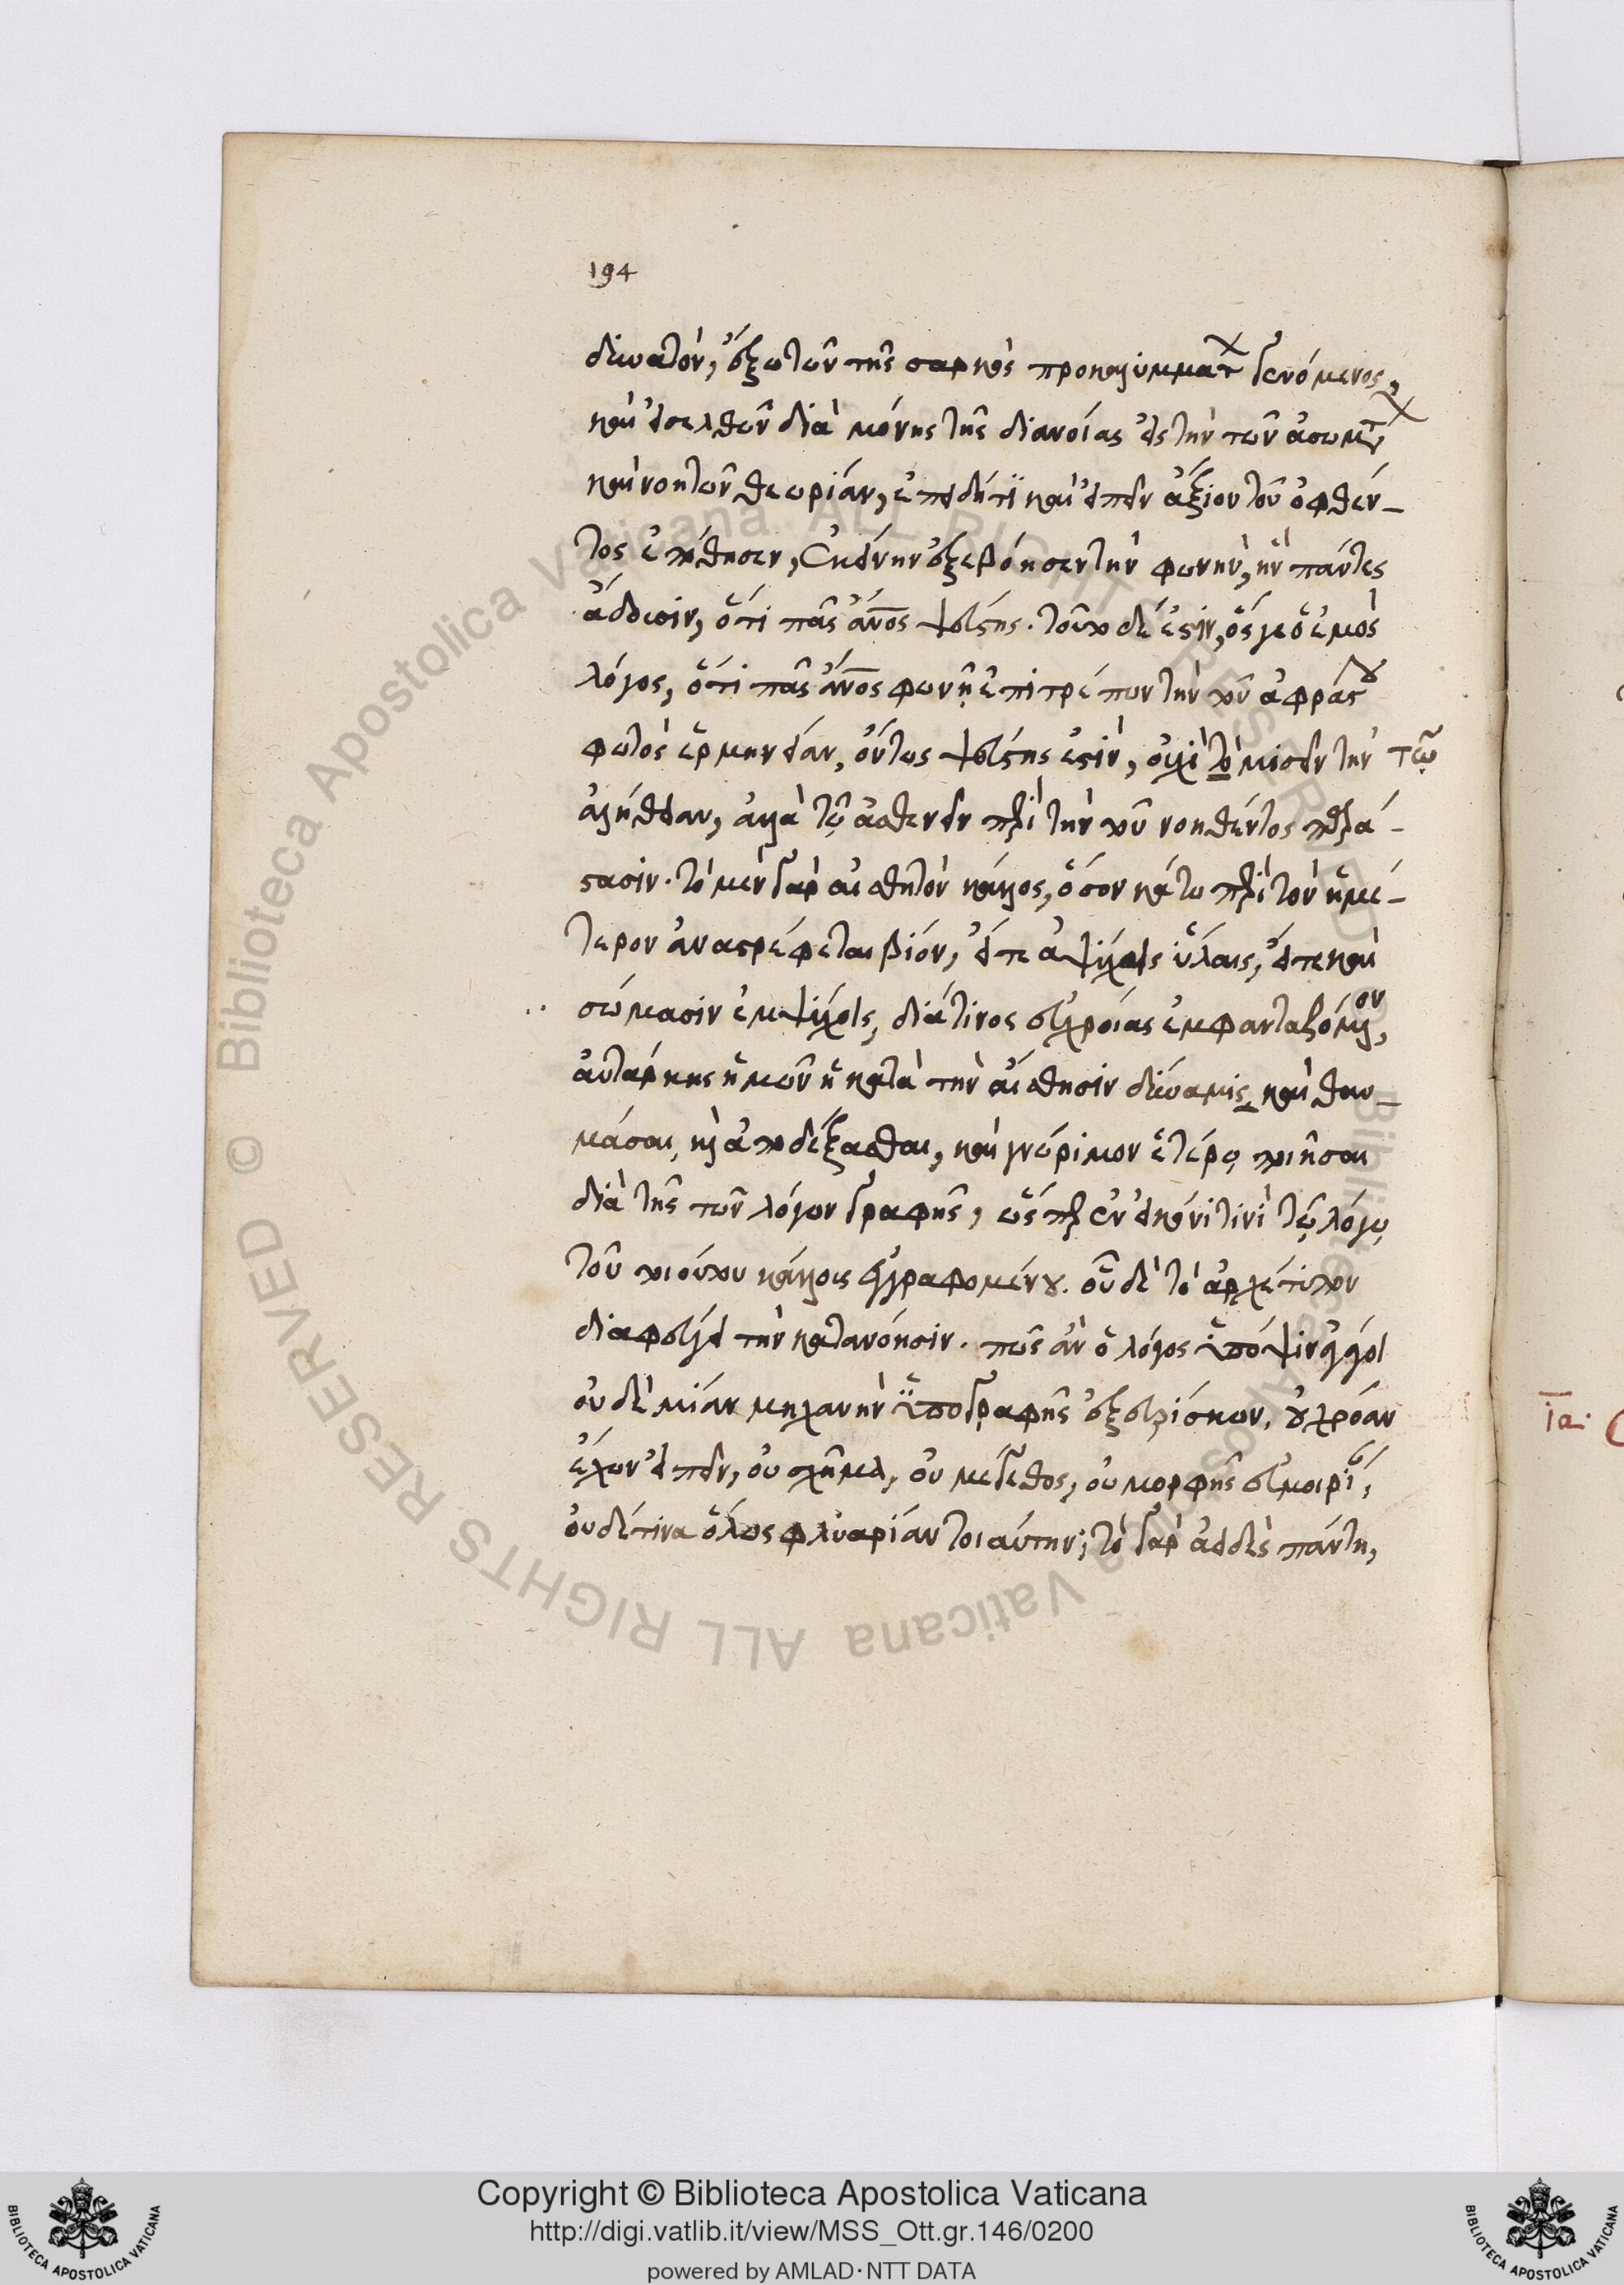 194
δυνατόν, ἔξω τῶν τῆς σαρκὸς προκαλυμμάτ γενόμενος,
καὶ εἰσελθὼν διὰ μόνης τῆς διανοίας εἰς τὴν τῶν ἀσωμτ
καὶ νοητῶν θεωρίαν, ἐπειδή τϊ καὶ εἰπεῖν ἄξιον τοῦ ὀφθέν-
τος ἐπόθησεν, ἐκείνην ἐξεβόησεν τὴν φωνὴν, ἣν πάντες
ἄδουσιν, ὅτι πᾶς ἄνος ψεύστης. τοῦτο δέ ἐστιν, ὥς γε ὁ ἐμὸς
λόγος, ὅτι πᾶς ἄνος φωνῆ ἐπιτρέπων τὴν τοῦ ἀφράστου
φωτὸς ἑρμηνείαν, ὄντως ψεύστης ἐστὶν, οὐχὶ τὸ μισεῖν τὴν τῶ
ἀλήθειαν, ἀλλὰ τῷ ἀσθενεῖν περὶ τὴν τοῦ νοηθέντος παρά-
στασιν. τὸ μὲν γὰρ αἰσθητὸν κάλλος, ὅσον κάτω περὶ τὸν ἡμέ-
τερον ἀναστρέφεται βίον, εἴτε ἀψύχοις ὕλαις, εἴτε καὶ
σώμασιν ἐμψύχοις, διά τινος εὐχροίας ἐμφανταζόμενον,
αὐτάρκης ἡμῶν ἡ κατὰ τὴν αἴσθησιν δύναμις καὶ θαυ-
μάσαι, κὶ ἀποδέξασθαι, καὶ γνώριμον ἑτέρῳ ποιῆσαι
διὰ τῆς τῶν λόγων γραφῆς, ὥσπερ ἐν εἰκόνι τινὶ τῷ λόγῳ
τοῦ τοιούτου κάλλους ἐγγραφομένου. οὗ δὲ τὸ ἀρχέτυπον
διαφεύγει τὴν κατανόησιν. πῶς ἂν ὁ λόγος ὑπόψιν ἀγάγοι
οὐδὲ μίαν μηχανὴν ὑπογραφῆς ἐξευρίσκων, οὐ χρόαν
ἔχων εἰπεῖν, οὐ σχῆμα, οὐ μέγεθος, οὐ μορφῆς εὐμοιρί,
οὐδέ τινα ὅλως φλυαρίαν τοιαύτην; τὸ γὰρ ἀειδὲς πάντη,
ια.
Copyright © Biblioteca Apostolica Vaticana
http://digi.vatlib.it/view/MSS_Ott.gr.146/0200
powered by AMLAD·NTT DATA
BIBLIOTECA APOSTOLICA VATICANA
BIBLIOTECA APOSTOLICA VATICANA
© Biblioteca Apostolica Vaticana ALL RIGHTS RESERVED © Biblioteca Apostolica Vaticana ALL RIGHTS RESERVED